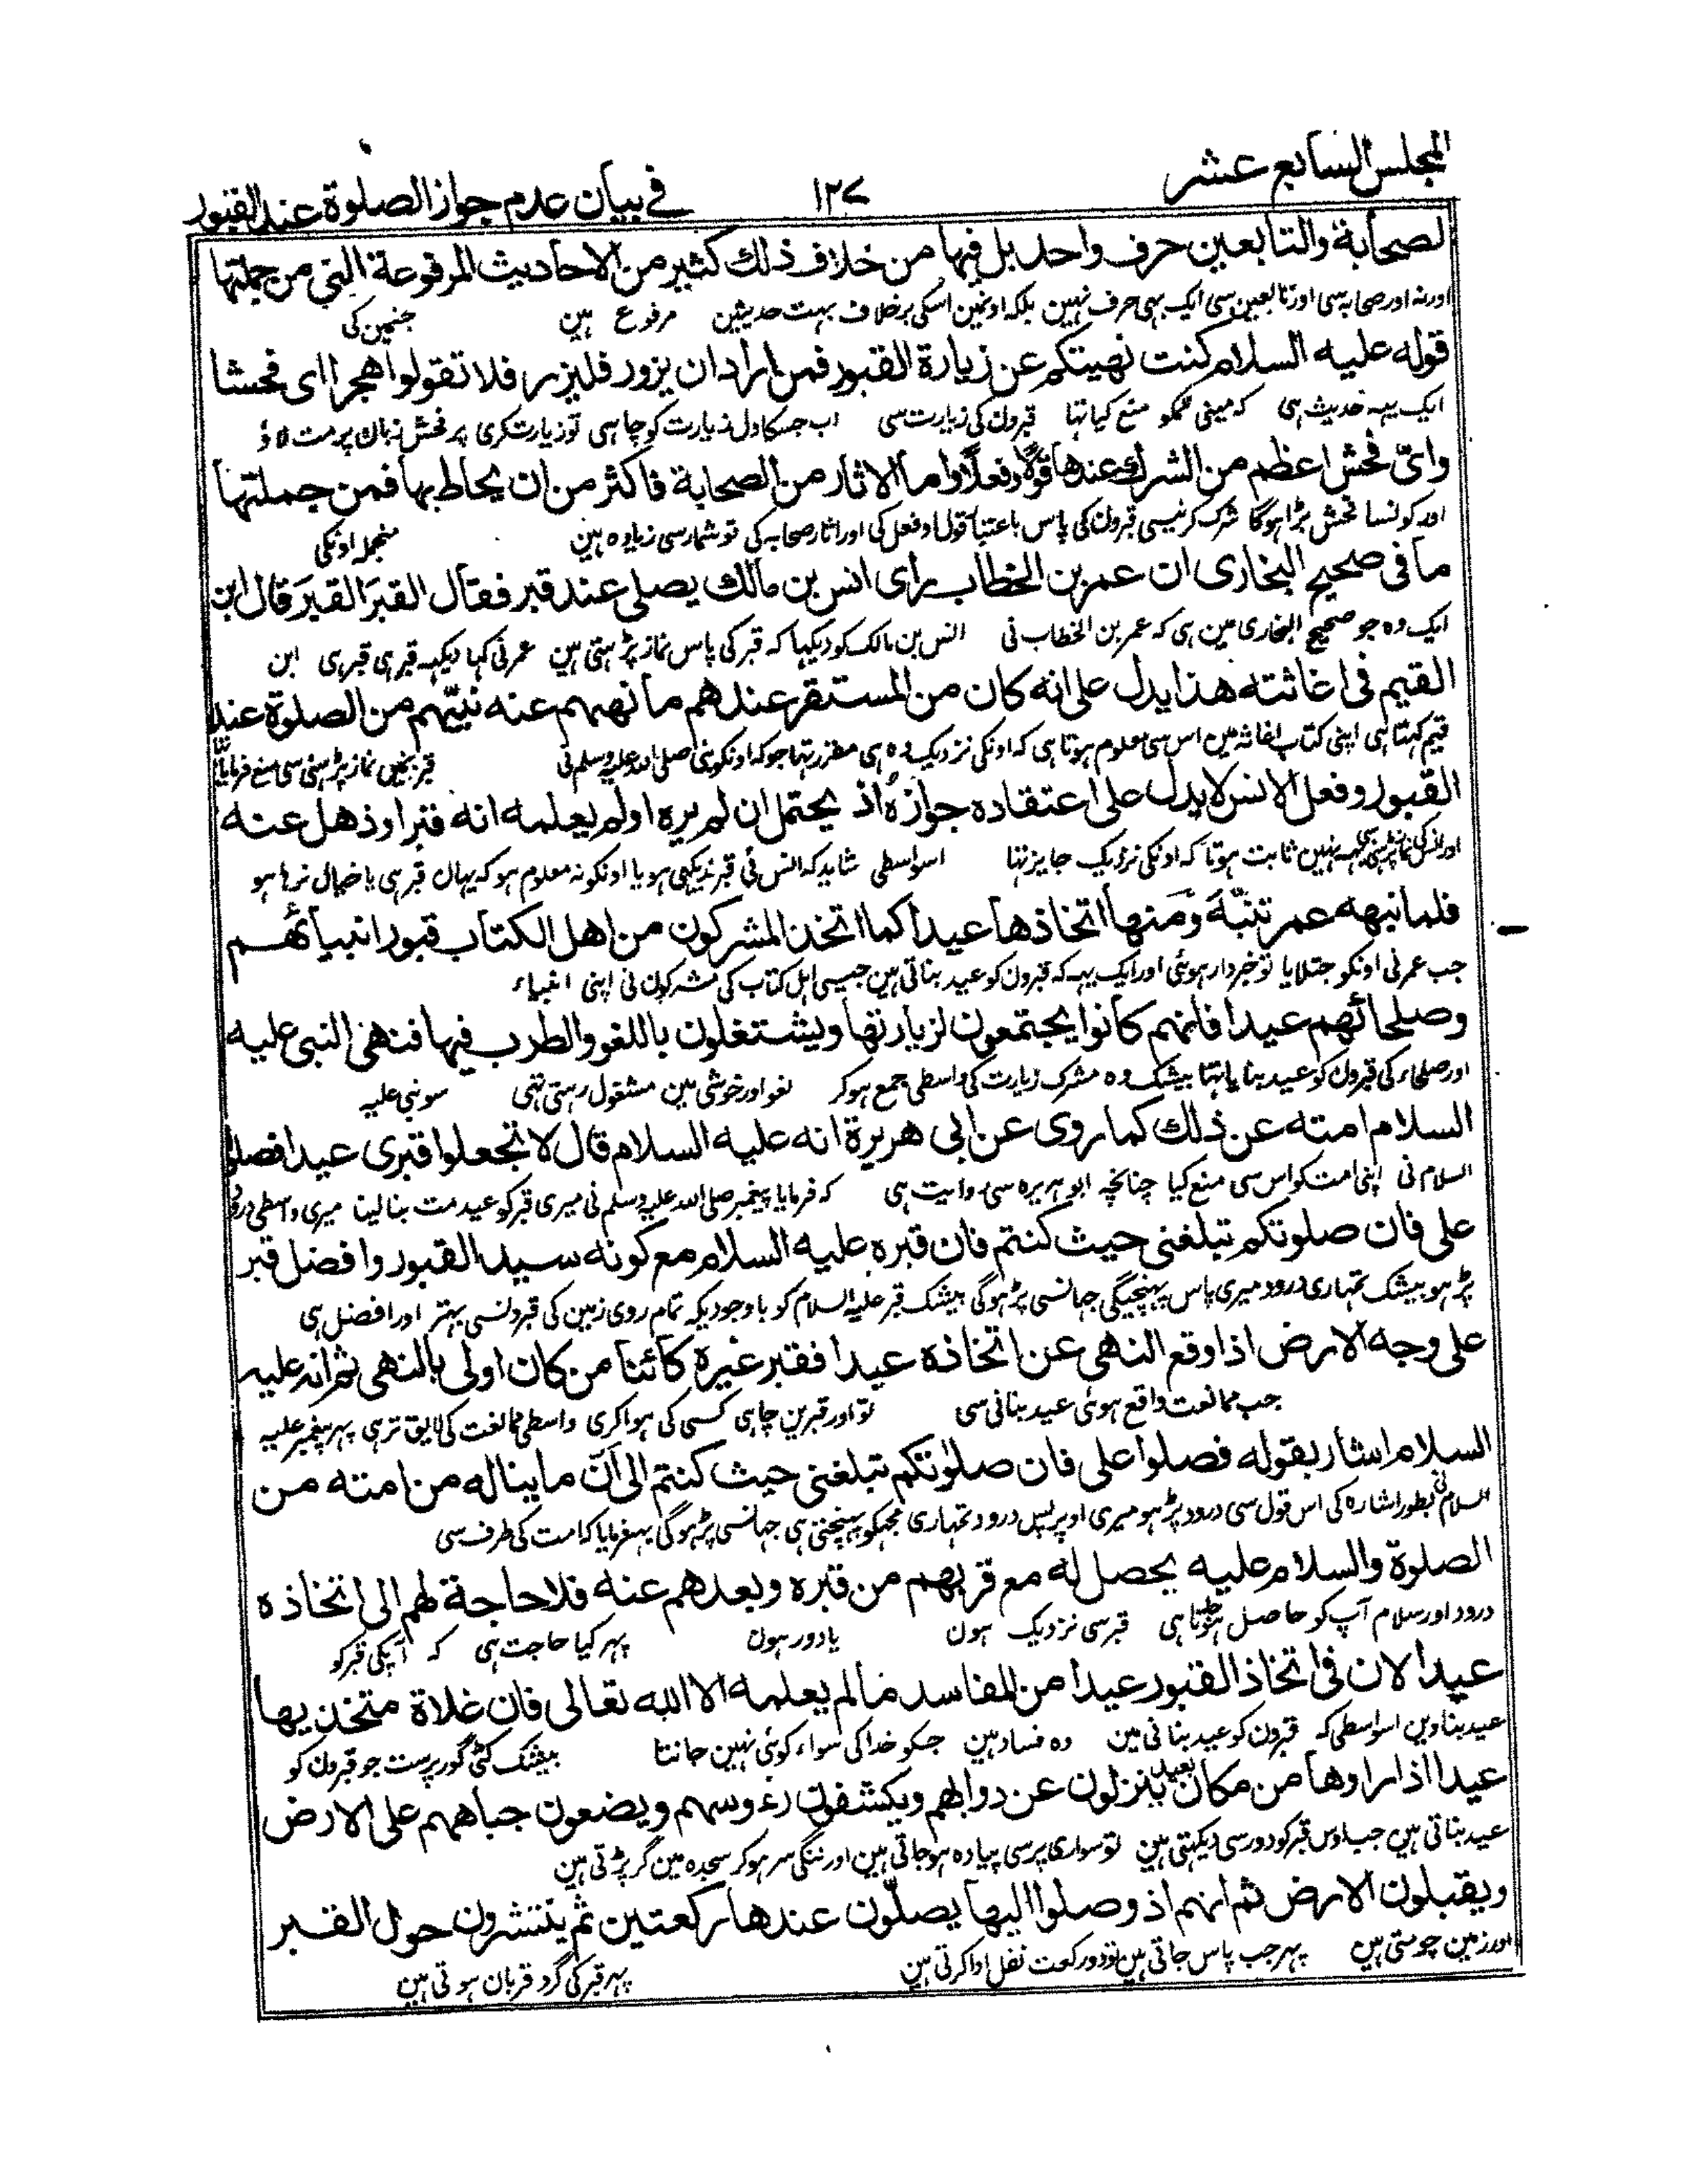 المجلس السابع عشر
١٢٧
في بيان عدم جواز الصلوة عند القبور
لصحابة والتابعين حرف واحد بل فيها من خلاف ذلك كثير من الاحاديث المرفوعة التي من جملتها
اورنہ اور صحابہ سی اور تابعین سی ایک بہی حرف نہین بلکہ اونمین اسکی برخلاف بہت حدیثین مرفوع ہین جنمین کی
قوله عليه السلام كنت نهيتكم عن زيارة القبور فمن اراد ان يزور فليزر فلا تقولوا هجرا اى فحشا
ایک یہہ حدیث ہی کہ مینی تمکو منع کیا تہا قبرون کی زیارت سی اب جسکا دل زیارت کو چاہی تو زیارت کری پر فحش زبان پر مت لاؤ
واىّ فحش اعظم من الشرك عندها قولا وفعلا واما الاثار من الصحابة فاكثر من ان يحاط بها فمن جملتها
اور کونسا فحش بڑا ہوگا شرک کرنیسی قبرون کی پاس باعتبار قول اور فعل کی اور اثار صحابہ کی تو شمار سی زیادہ ہین منجملہ اونکی
ما فى صحيح البخارى ان عمر بن الخطاب راى انس بن مالك يصلى عند قبر فقال القبرَ القبرَ قال ابن
ایک وہ جو صحیح البخاری مین ہی کہ عمر بن الخطاب نی انس بن مالک کو دیکہا کہ قبر کی پاس نماز پڑہتی ہین عمر نی کہا دیکہہ قبر ہی قبر ہی ابن
القيم فى اغاثته هذا يدل على انه كان من المستقر عندهم ما نهٰهم عنه نبيّهم من الصلوة عند
قیم کہتا ہی اپنی کتاب اغاثہ مین اس سی معلوم ہوتا ہی کہ اونکی نزدیک وہ ہی مقرر تہا جو کہ اونکو نبی صلی اللہ علیہ وسلم نی قبر پاس نماز پڑہنی سی منع فرمایا تہا
القبور وفعل الانس لا يدل على اعتقاده جوازه اذ يحتمل ان لم يره او لم يعلمه انه قبر او ذهل عنه
اور انس کی نماز پڑہنی سی یہہ نہین ثابت ہوتا کہ اونکی نزدیک جایز تہا اسواسطی شاید کہ انس نی قبر ندیکہی ہو یا اونکو نہ معلوم ہو کہ یہان قبر ہی یا خیال نرہا ہو
فلما نبهه عمر تنبّهَ ومنها اتخاذها عيدا كما اتخذ المشركون من اهل الكتاب قبور انبيائهم
جب عمر نی اونکو جتلایا تو خبردار ہوئی اور ایک یہہ کہ قبرون کو عید بناتی ہین جیسی اہل کتاب کی مشرکون نی اپنی انبیاء
وصلحائهم عيدا فانهم كانوا يجتمعون لزيارتها ويشتغلون باللغو والطرب فيها فنهى النبى عليه
اور صلحاء کی قبرون کو عید بنایا تہا بیشک وہ مشرک زیارت کی واسطی جمع ہوکر لغو اور خوشی مین مشغول رہتی تہی سو نبی علیہ
السلام امته عن ذلك كما روى عن ابى هريرة انه عليه السلام قال لا تجعلوا قبرى عيدا فصلوا
السلام نی اپنی امت کو اس سی منع کیا چنانچہ ابو ہریرہ سی روایت ہی کہ فرمایا پیغمبر صلی اللہ علیہ وسلم نی میری قبر کو عید مت بنا لینا میری واسطی درود
على فان صلوتكم تبلغنى حيث كنتم فان قبره عليه السلام مع كونه سيد القبور وافضل قبر
پڑہو بیشک تمہاری درود میری پاس پہنچیگی جہانسی پڑہوگی بیشک قبر علیہ السلام کو باوجودیکہ تمام روی زمین کی قبرونسی بہتر اور افضل ہی
على وجه الارض اذا وقع النهى عن اتخاذه عيدا فقبر غيره كائنا من كان اولى بالنهى ثم انه عليه
جب ممانعت واقع ہوئی عید بنانی سی تو اور قبرین چاہی کسی کی ہوا کری واسطی ممالغت کی لایق تر ہی پہر پیغمبر علیہ
السلام اشار بقوله فصلوا على فان صلوتكم تبلغنى حيث كنتم الى انّ ما يناله من امته من
السلام نی بطور اشارہ کی اس قول سی درود پڑہو میری اوپر پس درود تمہاری مجہکو پہنچتی ہی جہانسی پڑہوگی یہہ فرمایا کہ امت کی طرف سی
الصلوة والسلام عليه يحصل له مع قربهم من قبره وبعدهم عنه فلا حاجة لهم الى اتخاذه
درود اور سلام آپ کو حاصل ہوتا ہی قبر سی نزدیک ہون یا دور ہون پہر کیا حاجت ہی کہ آپکی قبر کو
عيدا لان فى اتخاذ القبور عيدا من المفاسد ما لم يعلمه الا الله تعالى فان غلاة متخذيها
عید بناوین اسواسطی کہ قبرون کو عید بنانی مین وہ فساد ہین جسکو خدا کی سواء کوئی نہین جانتا بیشک کٹی گورپرست جو قبرون کو
عيدا اذا راوها من مكان بعيد ينزلون عن دوابهم ويكشفون رءوسهم ويضعون جباههم على الارض
عید بناتی ہین جب اوس قبر کو دور سی دیکہتی ہین تو سواری پر سی پیادہ ہو جاتی ہین اور ننگی سر ہو کر سجدہ مین گر پڑتی ہین
ويقبلون الارض ثم انهم اذ وصلوا اليها يصلّون عندها ركعتين ثم ينتشرون حول القبر
اور زمین چومتی ہین پہر جب پاس جاتی ہین تو دو رکعت نفل ادا کرتی ہین پہر قبر کی گرد قربان ہوتی ہین